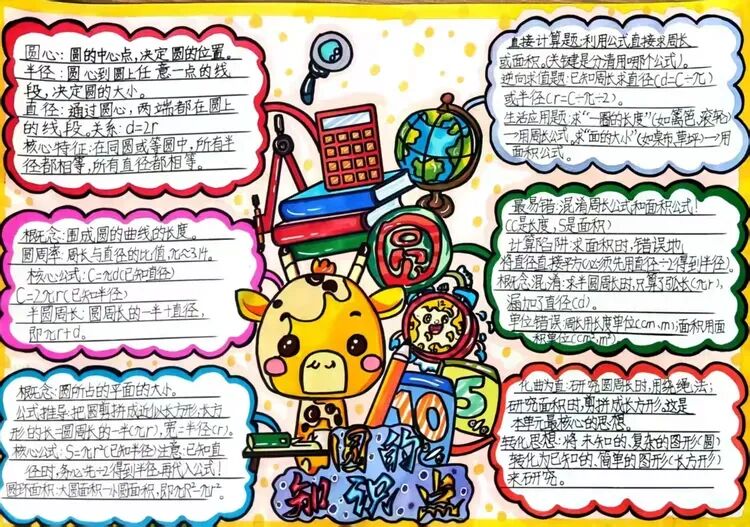 圆心:圆的中心点,决定圆的位置。
半径:圆心到圆上任意一点的线
段,决定圆的大小。
直径:通过圆心,两端都在圆上
的线段。关系:d=2r
核心特征:在同圆或等圆中,所有半
径都相等,所有直径都相等。
概念:围成圆的曲线的长度。
圆周率:周长与直径的比值,π≈3.14。
核心公式:C=πd(已知直径)
C=2πr(已知半径)
半圆周长:圆周长的一半+直径,
即πr+d。
概念:圆所占的平面的大小。
公式推导:把圆剪拼成近似长方形,长方
形的长=圆周长的一半(πr),宽=半径(r)。
核心公式:S=πr²(已知半径)注意:已知直
径时,务必先÷2得到半径,再代入公式!
圆环面积:大圆面积-小圆面积,即πR²-πr²。
圆
10
5
圆的
知识点
直接计算题:利用公式直接求周长
或面积。(关键是分清用哪个公式)。
逆向求值题:已知周长求直径(d=C÷π)
或半径(r=C÷π÷2)。
生活应用题:求“一圈的长度”(如篱笆、滚轮)
→用周长公式。求“面的大小”(如桌布、草坪)→用
面积公式。
最易错:混淆周长公式和面积公式!
(C是长度,S是面积)
计算陷阱:求面积时,错误地
将直径直接平方(必须先用直径÷2得到半径)。
概念混淆:求半圆周长时,只算了弧长(πr),
漏加了直径(d)。
单位错误:周长用长度单位(cm、m);面积用面
积单位(cm²、m²)
化曲为直:研究圆周长时,用绕绳法;
研究面积时,剪拼成长方形。这是
本单元最核心的思想。
转化思想:将未知的、复杂的图形(圆)
转化为已知的、简单的图形(长方形)
来研究。